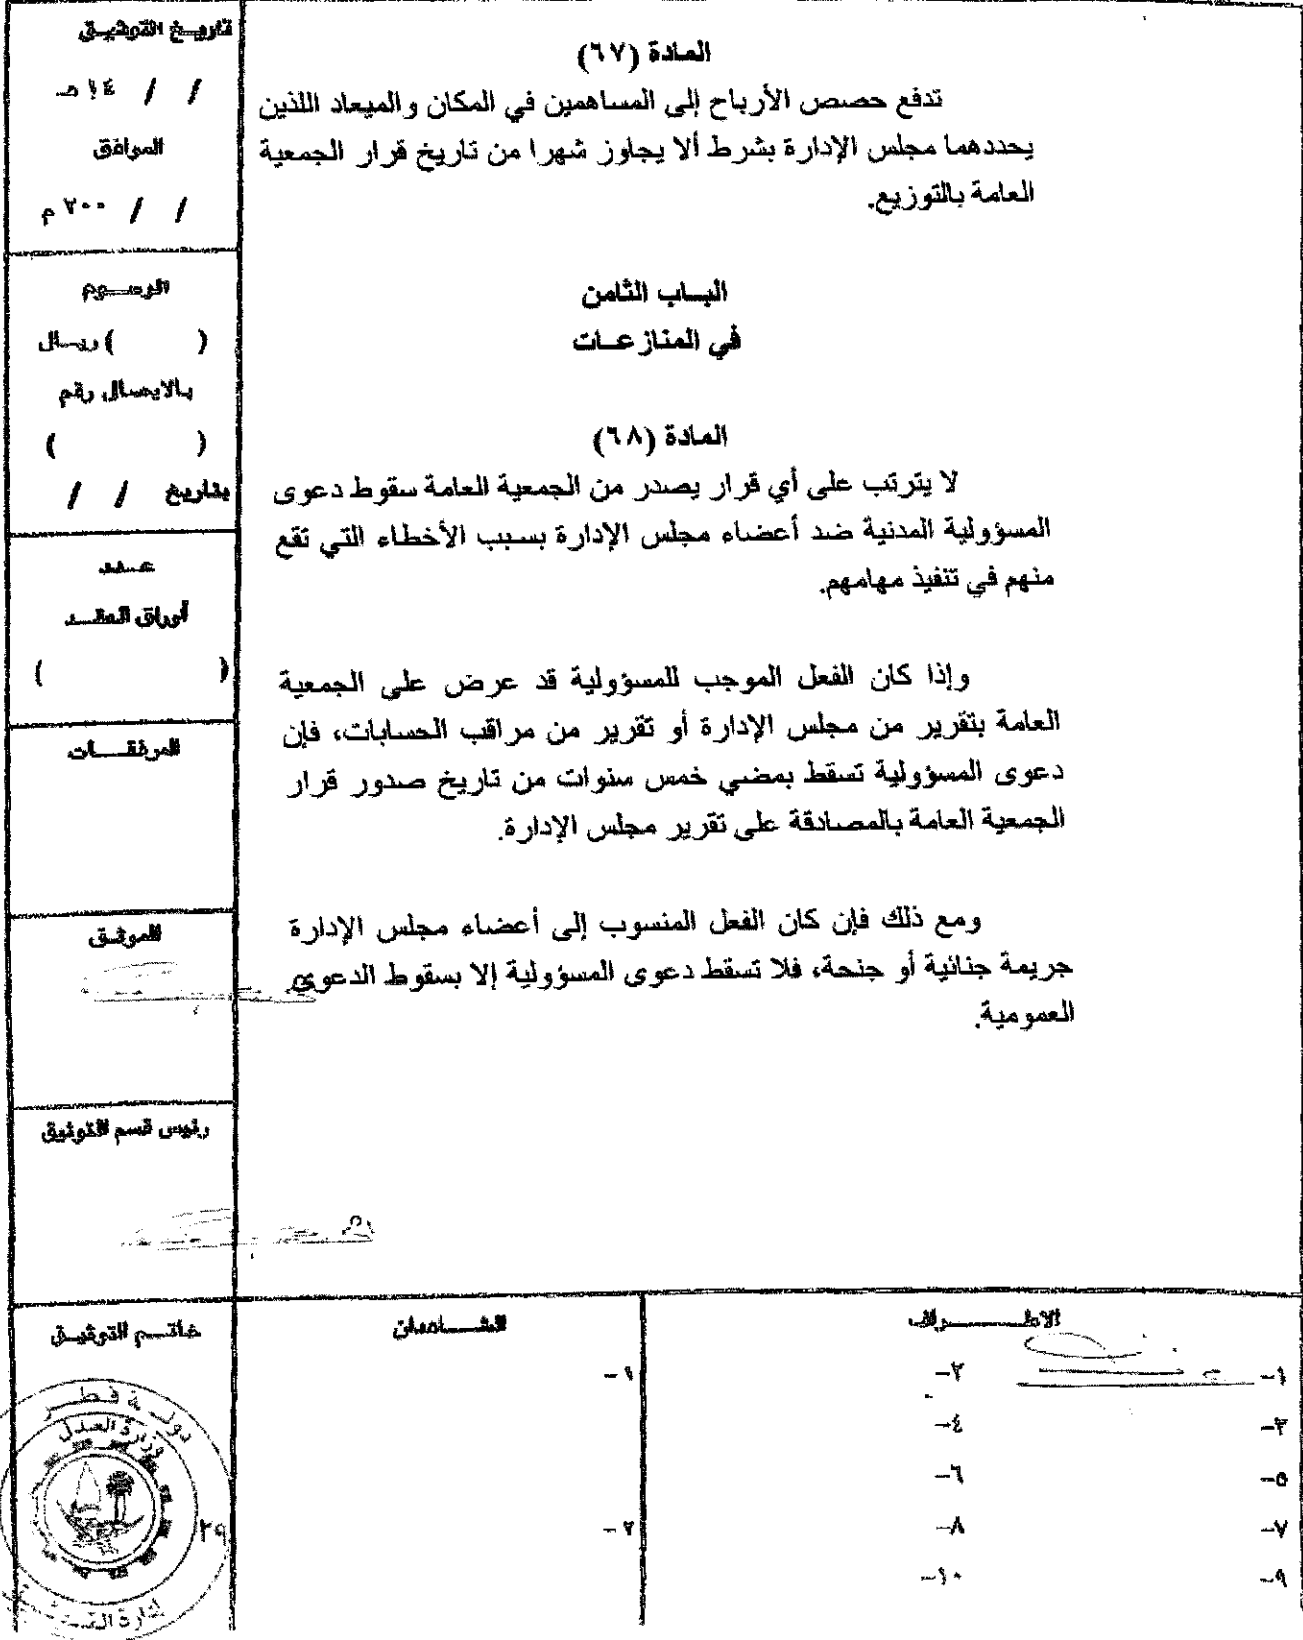 المادة (٦٧)
تدفع حصص الأرباح إلى المساهمين في المكان والميعاد اللذين
يحددهما مجلس الإدارة بشرط ألا يجاوز شهرا من تاريخ قرار الجمعية
العامة بالتوزيع.
الباب الثامن
في المنازعات
المادة (٦٨)
لا يترتب على أي قرار يصدر من الجمعية العامة سقوط دعوى
المسؤولية المدنية ضد أعضاء مجلس الإدارة بسبب الأخطاء التي تقع
منهم في تنفيذ مهامهم.
وإذا كان الفعل الموجب للمسؤولية قد عرض على الجمعية
العامة بتقرير من مجلس الإدارة أو تقرير من مراقب الحسابات، فإن
دعوى المسؤولية تسقط بمضي خمس سنوات من تاريخ صدور قرار
الجمعية العامة بالمصادقة على تقرير مجلس الإدارة.
ومع ذلك فإن كان الفعل المنسوب إلى أعضاء مجلس الإدارة
جريمة جنائية أو جنحة، فلا تسقط دعوى المسؤولية إلا بسقوط الدعوى
العمومية.
تاريخ التوثيق
/ / ١٤هـ
الموافق
/ / ٢٠٠م
الرسوم
( ) ريال
بالايصال رقم
( )
بتاريخ / /
عدد
أوراق العقد
( )
المرفقات
الموثق
رئيس قسم التوثيق
الاطراف
١-
٢-
٣-
٤-
٥-
٦-
٧-
٨-
٩-
١٠-
الشاهدان
١-
٢-
خاتم التوثيق
دولة قطر
وزارة العدل
٢٩